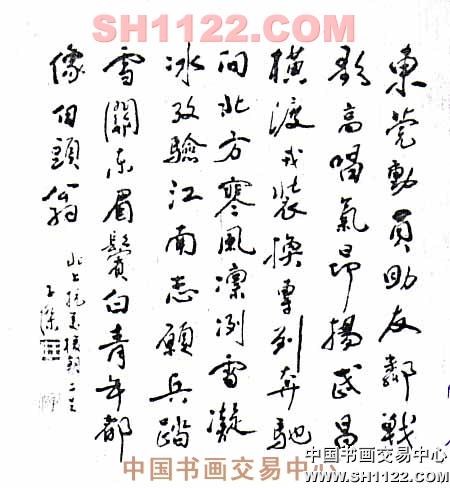 SH1122.COM
東莞動員助友鄰戰
歌高唱氣昂揚武昌
橫渡戎裝換專列奔馳
向北方寒風凛冽雪凝
冰考驗江南志願兵踏
雪關東眉鬢白青年都
像白頭翁
北上抗美援朝二首
中国书画交易中心
中国书画交易中心
www.SH1122.COM